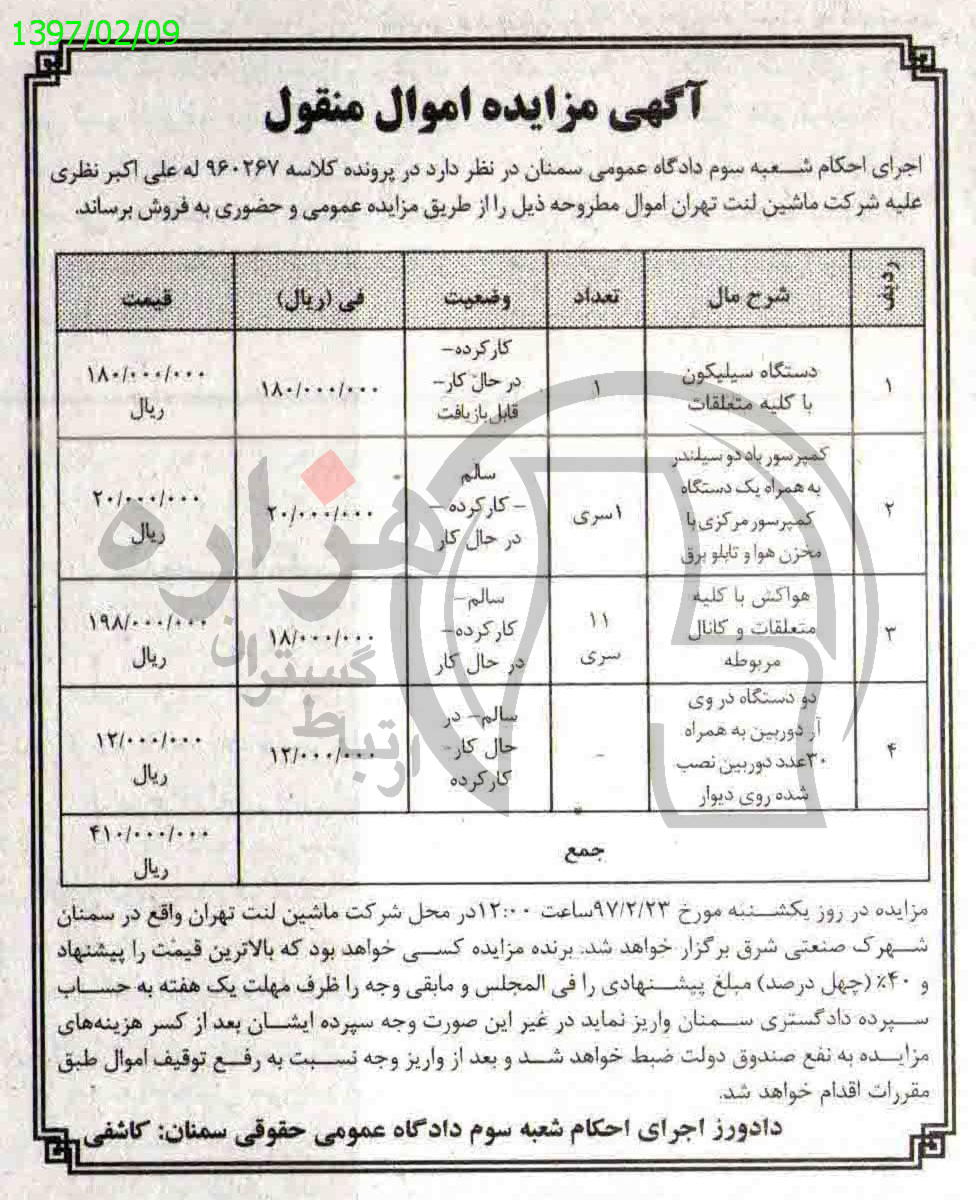 1397/02/09
آگهی مزایده اموال منقول
اجرای احکام شعبه سوم دادگاه عمومی سمنان در نظر دارد در پرونده کلاسه ۹۶۰۲۶۷ له علی اکبر نظری
علیه شرکت ماشین لنت تهران اموال مطروحه ذیل را از طریق مزایده عمومی و حضوری به فروش برساند.
ردیف شرح مال تعداد وضعیت فی (ریال) قیمت
۱
دستگاه سیلیکون
با کلیه متعلقات
۱
کارکرده-
در حال کار-
قابل بازیافت
۱۸۰/۰۰۰/۰۰۰
۱۸۰/۰۰۰/۰۰۰
ریال
۲
کمپرسور باد دو سیلندر
به همراه یک دستگاه
کمپرسور مرکزی با
مخزن هوا و تابلو برق
۱سری
سالم
- کارکرده -
در حال کار
۲۰/۰۰۰/۰۰۰
۲۰/۰۰۰/۰۰۰
ریال
۳
هواکش با کلیه
متعلقات و کانال
مربوطه
۱۱
سری
سالم-
کارکرده-
در حال کار
۱۸/۰۰۰/۰۰۰
۱۹۸/۰۰۰/۰۰۰
ریال
۴
دو دستگاه در وی
آر دوربین به همراه
۳۰عدد دوربین نصب
شده روی دیوار
-
سالم- در
حال کار-
کارکرده
۱۲/۰۰۰/۰۰۰
۱۲/۰۰۰/۰۰۰
ریال
جمع
۴۱۰/۰۰۰/۰۰۰
ریال
مزایده در روز یکشنبه مورخ ۹۷/۲/۲۳ساعت ۱۲:۰۰در محل شرکت ماشین لنت تهران واقع در سمنان
شهرک صنعتی شرق برگزار خواهد شد. برنده مزایده کسی خواهد بود که بالاترین قیمت را پیشنهاد
و ۴۰٪ (چهل درصد) مبلغ پیشنهادی را فی المجلس و مابقی وجه را ظرف مهلت یک هفته به حساب
سپرده دادگستری سمنان واریز نماید در غیر این صورت وجه سپرده ایشان بعد از کسر هزینه‌های
مزایده به نفع صندوق دولت ضبط خواهد شد و بعد از واریز وجه نسبت به رفع توقیف اموال طبق
مقررات اقدام خواهد شد.
دادورز اجرای احکام شعبه سوم دادگاه عمومی حقوقی سمنان: کاشفی
هزاره
گستران
ارتباط